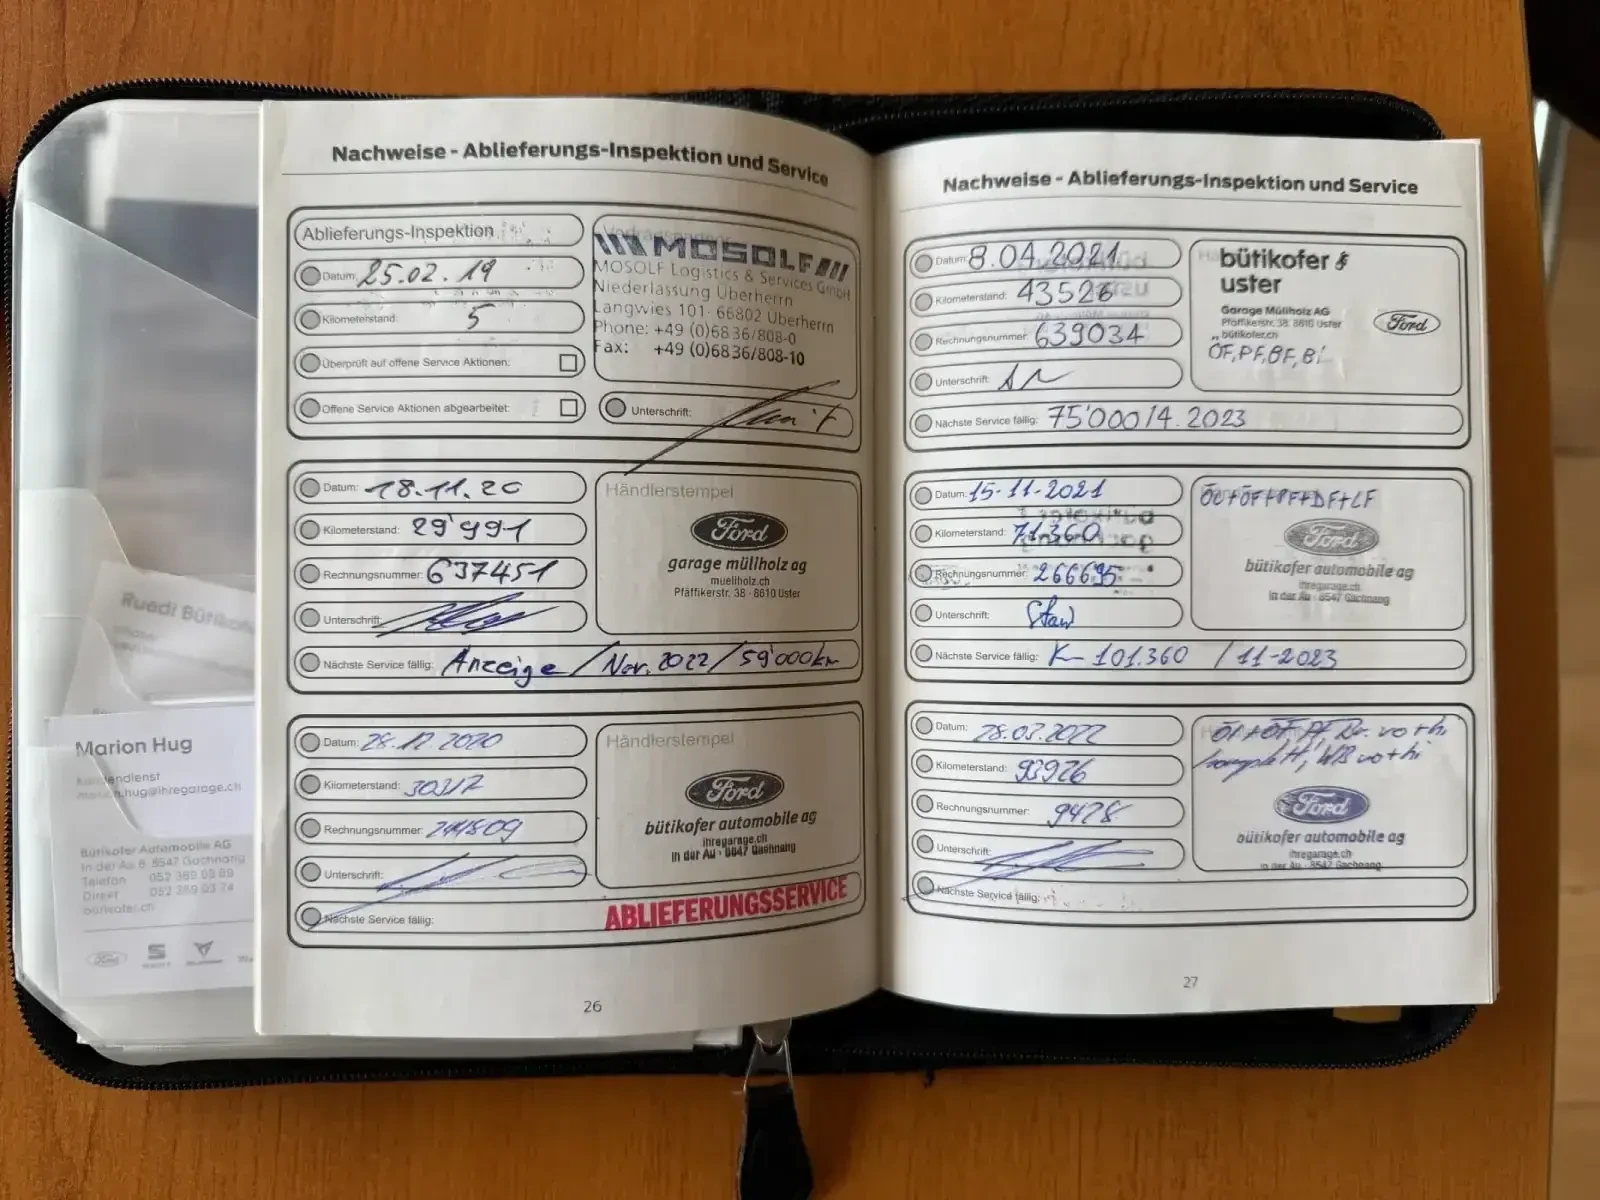 Nachweise - Ablieferungs-Inspektion und Service
Ablieferungs-Inspektion
Datum: 25.02.19
Kilometerstand: 5
Überprüft auf offene Service Aktionen:
Offene Service Aktionen abgearbeitet:
MOSOLF
MOSOLF Logistics & Services GmbH
Niederlassung Überherrn
Langwies 101 · 66802 Überherrn
Phone: +49 (0)6836/808-0
Fax: +49 (0)6836/808-10
Unterschrift:
Datum: 18.11.20
Kilometerstand: 29'991
Rechnungsnummer: 637451
Unterschrift:
Nächste Service fällig: Anzeige / Nov. 2022 / 59'000 km
Händlerstempel
Ford
garage müllholz ag
muellholz.ch
Pfäffikerstr. 38 · 8610 Uster
Datum: 28.12.2020
Kilometerstand: 30317
Rechnungsnummer: 244809
Unterschrift:
Nächste Service fällig:
Händlerstempel
Ford
bütikofer automobile ag
ihregarage.ch
in der Au · 8547 Gachnang
ABLIEFERUNGSSERVICE
26
Nachweise - Ablieferungs-Inspektion und Service
Datum: 8.04.2021
Kilometerstand: 43526
Rechnungsnummer: 639034
Unterschrift:
Nächste Service fällig: 75'000/4.2023
bütikofer
uster
Garage Müllholz AG
Pfäffikerstr. 38, 8610 Uster
bütikofer.ch
Ford
ÖF, PF, BF, Bi
Datum: 15-11-2021
Kilometerstand: 71'360
Rechnungsnummer: 266695
Unterschrift:
Nächste Service fällig: K- 101.360 / 11-2023
Ford
bütikofer automobile ag
ihregarage.ch
in der Au · 8547 Gachnang
Datum: 28.03.2022
Kilometerstand: 93926
Rechnungsnummer: 9428
Unterschrift:
Nächste Service fällig:
Ford
bütikofer automobile ag
ihregarage.ch
in der Au · 8547 Gachnang
27
Ruedi
Marion Hug
Kundendienst
marion.hug@ihregarage.ch
Bütikofer Automobile AG
In der Au 6, 8547 Gachnang
Telefon
Direkt
bütikofer.ch
Ford
SEAT